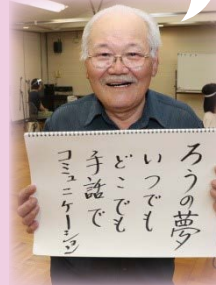 ろうの夢
いつでも
どこでも
手話で
コミュニケーション